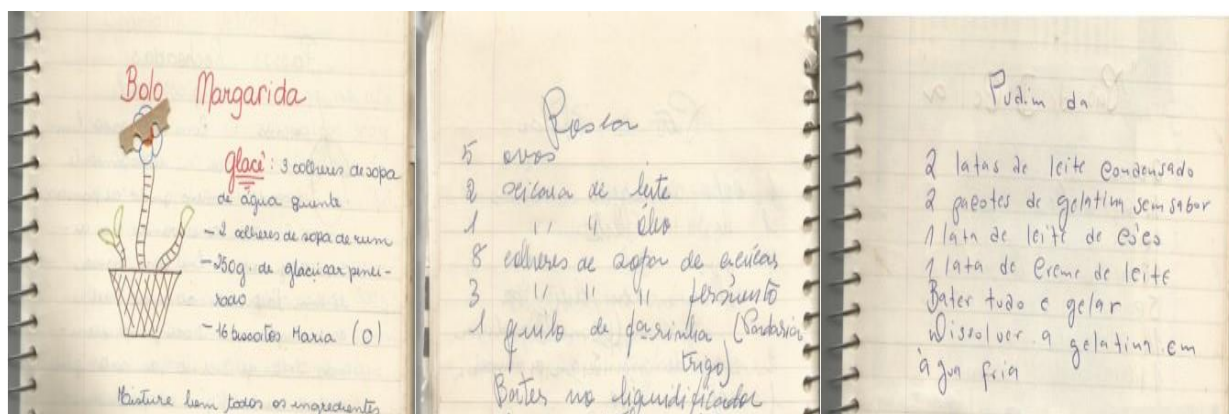 Bolo Margarida
glacê: 3 colheres de sopa
de água quente
- 2 colheres de sopa de rum
- 250g. de glaçúcar penei-
rado
- 16 biscoitos Maria (O)
Misture bem todos os ingredientes
Rosca
5 ovos
2 xícara de leite
1 " " óleo
8 colheres de sopa de açúcar
3 " " " fermento
1 quilo de farinha
trigo)
Bater no liquidificador
Pudim da
2 latas de leite condensado
2 pacotes de gelatina sem sabor
1 lata de leite de côco
1 lata de creme de leite
Bater tudo e gelar
Dissolver a gelatina em
água fria